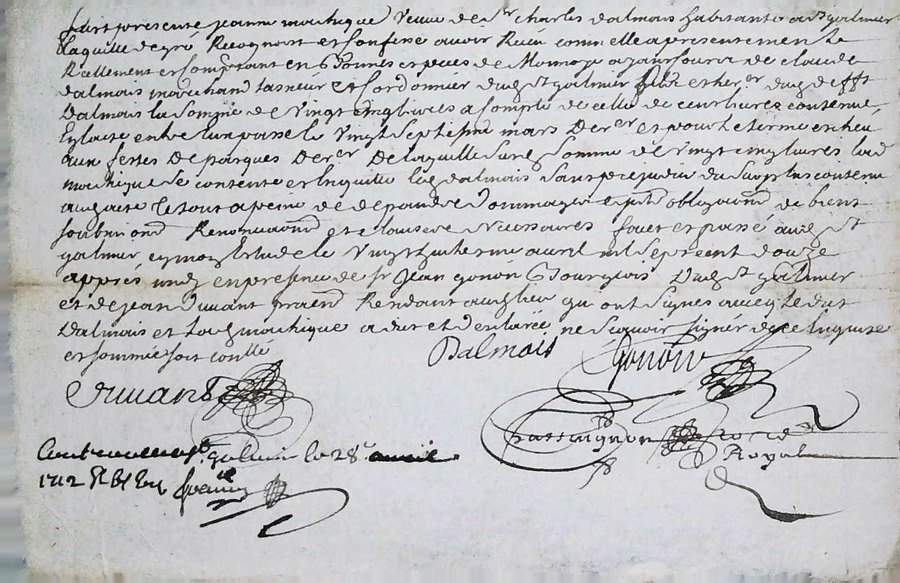 fust presente jeanne mouchique veuve de Sr charles dalmais habitante a St galmier
laquelle de gré Recognoist et confesse avoir Reçu comme elle a presentement
Reellement et comptant en bonnes especes de Monnoye a jour foura de claude
dalmais marchand tasneur et cordonnier dudt St galmier filz et herer dudt defft
Dalmais la somme de Vingt cinq livres a compte de celle de cent livres contenue
Et l'acte entre eux passé le Vingt Septieme mars derer et pour le terme escheu
aux festes De pasques derer De laquelle susd somme de vingt cinq livres lad
mouchique se contente et en quitte led dalmais sans prejudice du surplus contenu
aud acte le tout a peine de depand dommages obligaond de biens
soubmond Renonciaond et clauses Necessaires fait et passé aud St
galmier cy maison de le Vingt huitieme avril mil sept cent douze
apprés midy en presence de Sr Jean gonon bourgeois dudt St galmier
et de jean durant praticn Residant aud lieu qui ont signes avecq ledit
Dalmais et lad mouchique a dit et declarée ne scavoir signer de ce enquise
et sommée soit conllé
Dalmais Gonon
Durant
Chassaignon Nore
Royal
Controollé a St galmier le 28e avril
1712 R